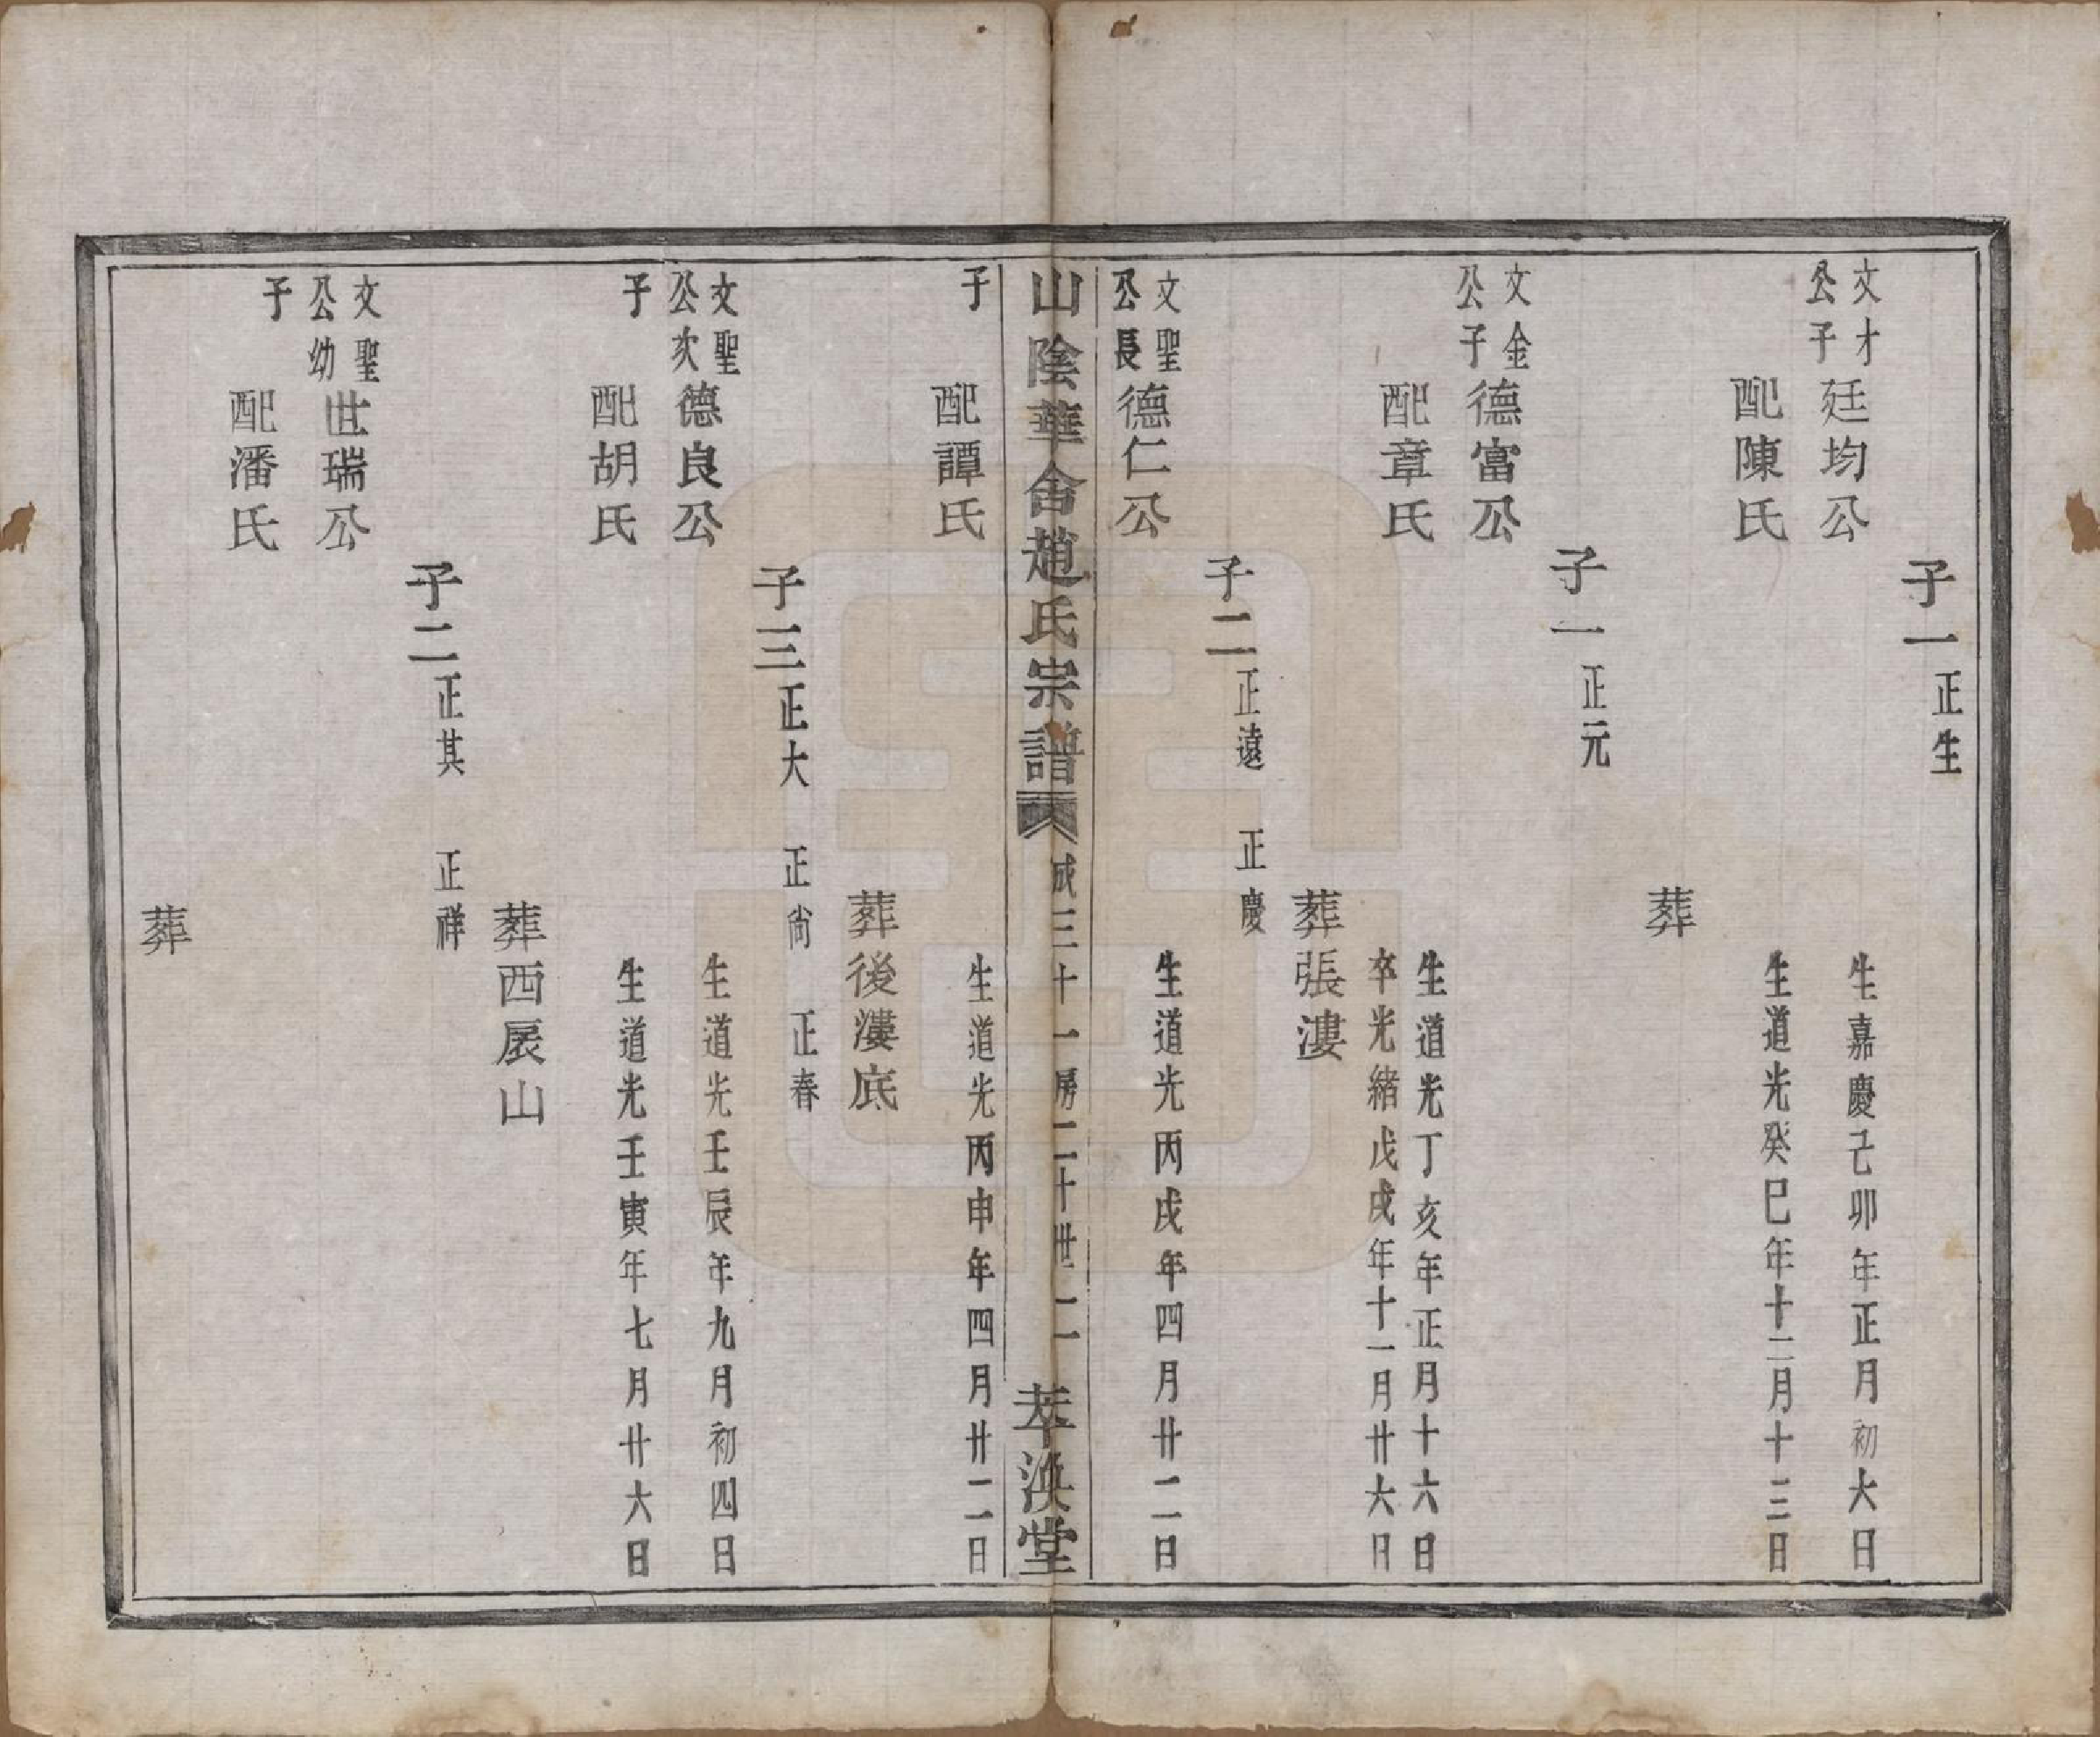 子一正生
文才公子廷均公 生嘉慶己卯年正月初六日
配陳氏 生道光癸巳年十二月十三日
葬
子一正元
文金公子德富公 生道光丁亥年正月十六日
卒光緒戊戌年十一月廿六日
配章氏
葬張漊
子二正遠 正慶
文聖公長德仁公 生道光丙戌年四月廿二日
山陰華舍趙氏宗譜 成三十一房二十世二 萃渙堂
子配譚氏 生道光丙申年四月廿二日
葬後漊底
子三正大 正尚 正春
文聖公次德良公 生道光壬辰年九月初四日
子配胡氏 生道光壬寅年七月廿六日
葬西扆山
子二正其 正祥
文聖公幼世瑞公
子配潘氏
葬